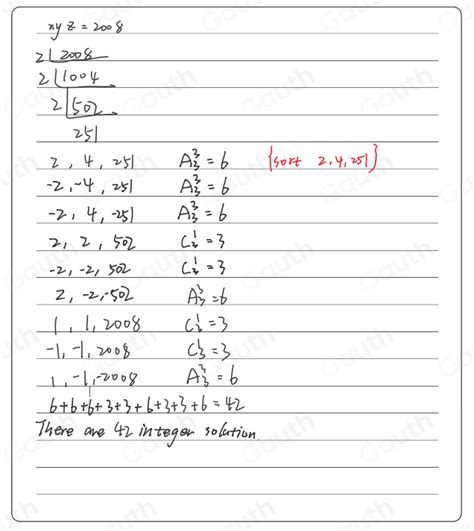 xyz = 2008
2 2008
2 1004
2 502
251
2, 4, 251 A³₃ = 6 {sort 2, 4, 251}
-2, -4, 251 A³₃ = 6
-2, 4, -251 A³₃ = 6
2, 2, 502 C¹₃ = 3
-2, -2, 502 C¹₃ = 3
2, -2, -502 A³₃ = 6
1, 1, 2008 C¹₃ = 3
-1, -1, 2008 C¹₃ = 3
1, -1, -2008 A³₃ = 6
6+6+6+3+3+6+3+3+6 = 42
There are 42 integer solution.
Gauth